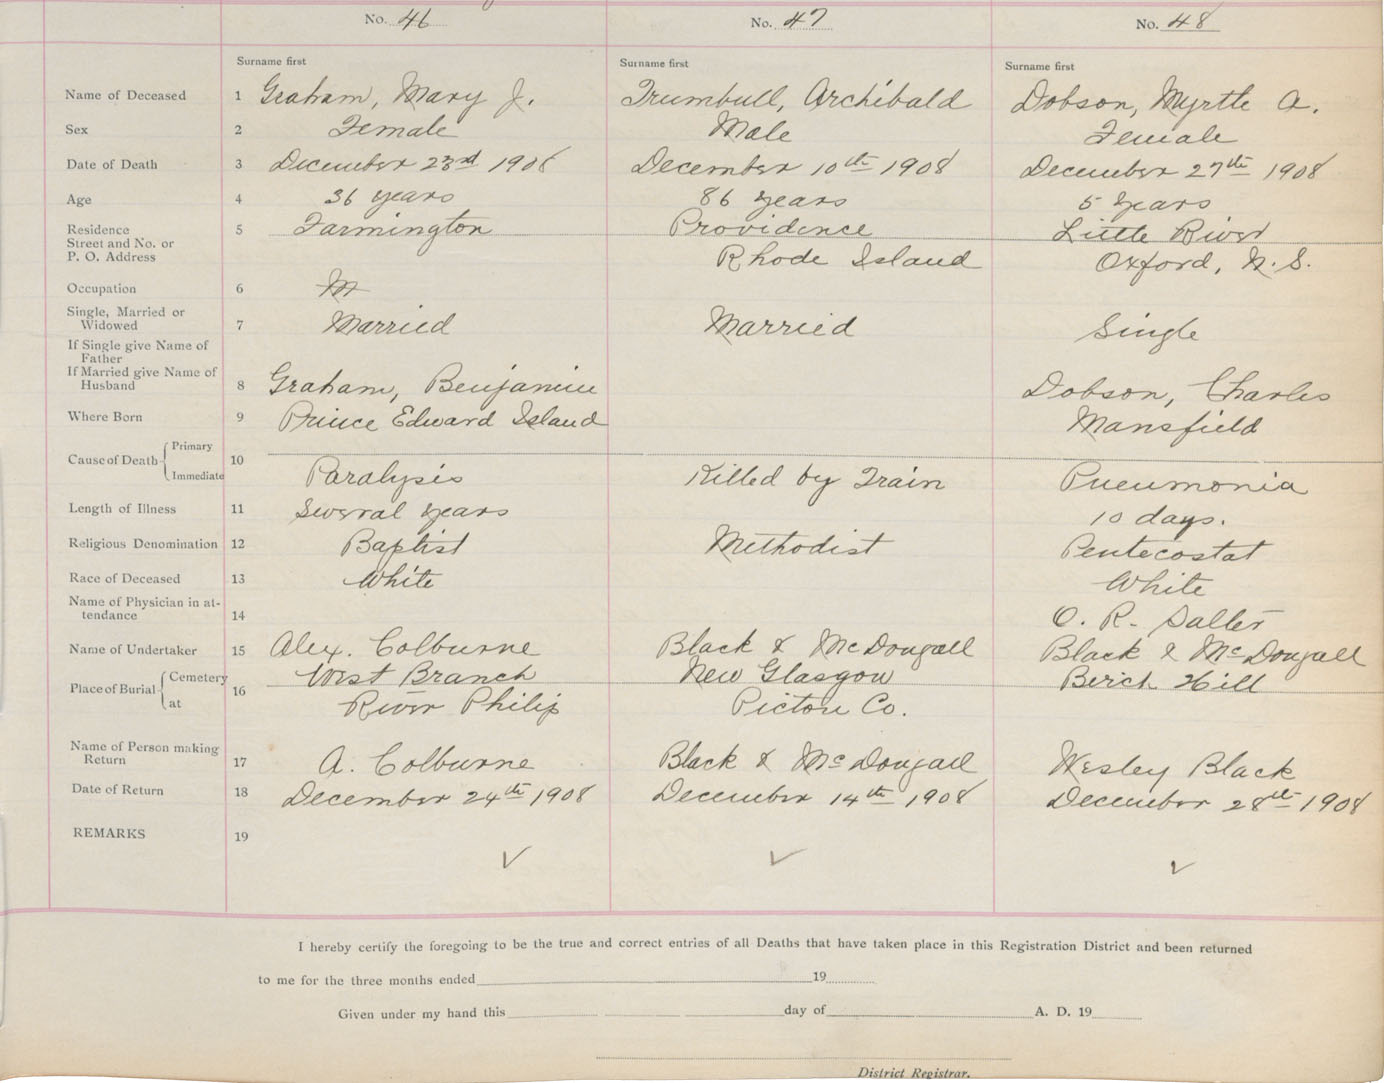 No. 46 No. 47 No. 48
Surname first Surname first Surname first
Name of Deceased 1 Graham, Mary J. Trumbull, Archibald Dobson, Myrtle A.
Sex 2 Female Male Female
Date of Death 3 December 23rd 1908 December 10th 1908 December 27th 1908
Age 4 36 years 86 years 5 years
Residence 5 Farmington Providence Little River
Street and No. or
P. O. Address Rhode Island Oxford, N. S.
Occupation 6 M
Single, Married or
Widowed 7 Married Married Single
If Single give Name of
Father
If Married give Name of
Husband 8 Graham, Benjamin Dobson, Charles
Where Born 9 Prince Edward Island Mansfield
Cause of Death 10 Primary
Immediate Paralysis Killed by Train Pneumonia
Length of Illness 11 Several years 10 days.
Religious Denomination 12 Baptist Methodist Pentecostat
Race of Deceased 13 White White
Name of Physician in at-
tendance 14 O. R. Salter
Name of Undertaker 15 Alex. Colburne Black & McDougall Black & McDougall
Place of Burial 16 Cemetery West Branch New Glasgow Birch Hill
at River Philip Pictou Co.
Name of Person making
Return 17 A. Colburne Black & McDougall Wesley Black
Date of Return 18 December 24th 1908 December 14th 1908 December 28th 1908
REMARKS 19
✓ ✓ ✓
I hereby certify the foregoing to be the true and correct entries of all Deaths that have taken place in this Registration District and been returned
to me for the three months ended 19
Given under my hand this day of A. D. 19
District Registrar.